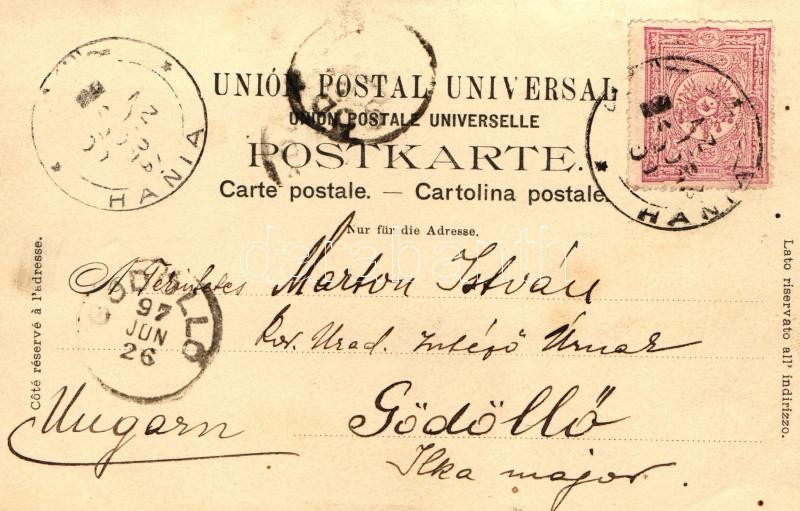 UNIÓN POSTAL UNIVERSAL
UNION POSTALE UNIVERSELLE
POSTKARTE.
Carte postale. — Cartolina postale.
Nur für die Adresse.
HANIA
HANIA
Côté réservé à l'adresse.
Lato riservato all' indirizzo.
Marton István
Kor. Urad. Intéző Úrnak
Gödöllő
Ilka major.
Ungarn
GÖDÖLLŐ
97
JUN
26
darabanth